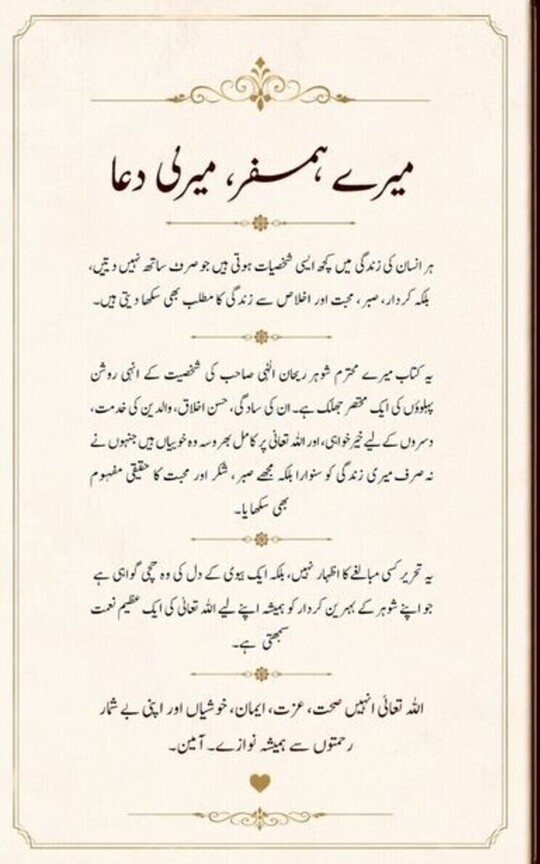 میرے ہمسفر، میری دعا
ہر انسان کی زندگی میں کچھ ایسی شخصیات ہوتی ہیں جو صرف ساتھ نہیں دیتیں،
بلکہ کردار، صبر، محبت اور اخلاص سے زندگی کا مطلب بھی سکھا دیتی ہیں۔
یہ کتاب میرے محترم شوہر ریحان الٰہی صاحب کی شخصیت کے انہی روشن
پہلوؤں کی ایک مختصر جھلک ہے۔ ان کی سادگی، حسن اخلاق، والدین کی خدمت،
دوسروں کے لیے خیر خواہی، اور اللہ تعالیٰ پر کامل بھروسہ وہ خوبیاں ہیں جنہوں نے
نہ صرف میری زندگی کو سنوارا بلکہ مجھے صبر، شکر اور محبت کا حقیقی مفہوم
بھی سکھایا۔
یہ تحریر کسی مبالغے کا اظہار نہیں، بلکہ ایک بیوی کے دل کی وہ سچی گواہی ہے
جو اپنے شوہر کے بہترین کردار کو ہمیشہ اپنے لیے اللہ تعالیٰ کی ایک عظیم نعمت
سمجھتی ہے۔
اللہ تعالیٰ انہیں صحت، عزت، ایمان، خوشیاں اور اپنی بے شمار
رحمتوں سے ہمیشہ نوازے۔ آمین۔